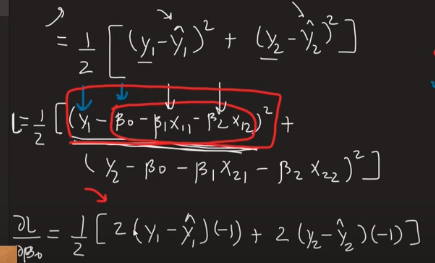 = 1/2 [ (y₁ - ŷ₁)² + (y₂ - ŷ₂)² ]
L = 1/2 [ (y₁ - β0 - β₁x₁₁ - β₂x₁₂)² +
(y₂ - β0 - β₁x₂₁ - β₂x₂₂)² ]
∂L/∂β0 = 1/2 [ 2(y₁ - ŷ₁)(-1) + 2(y₂ - ŷ₂)(-1) ]